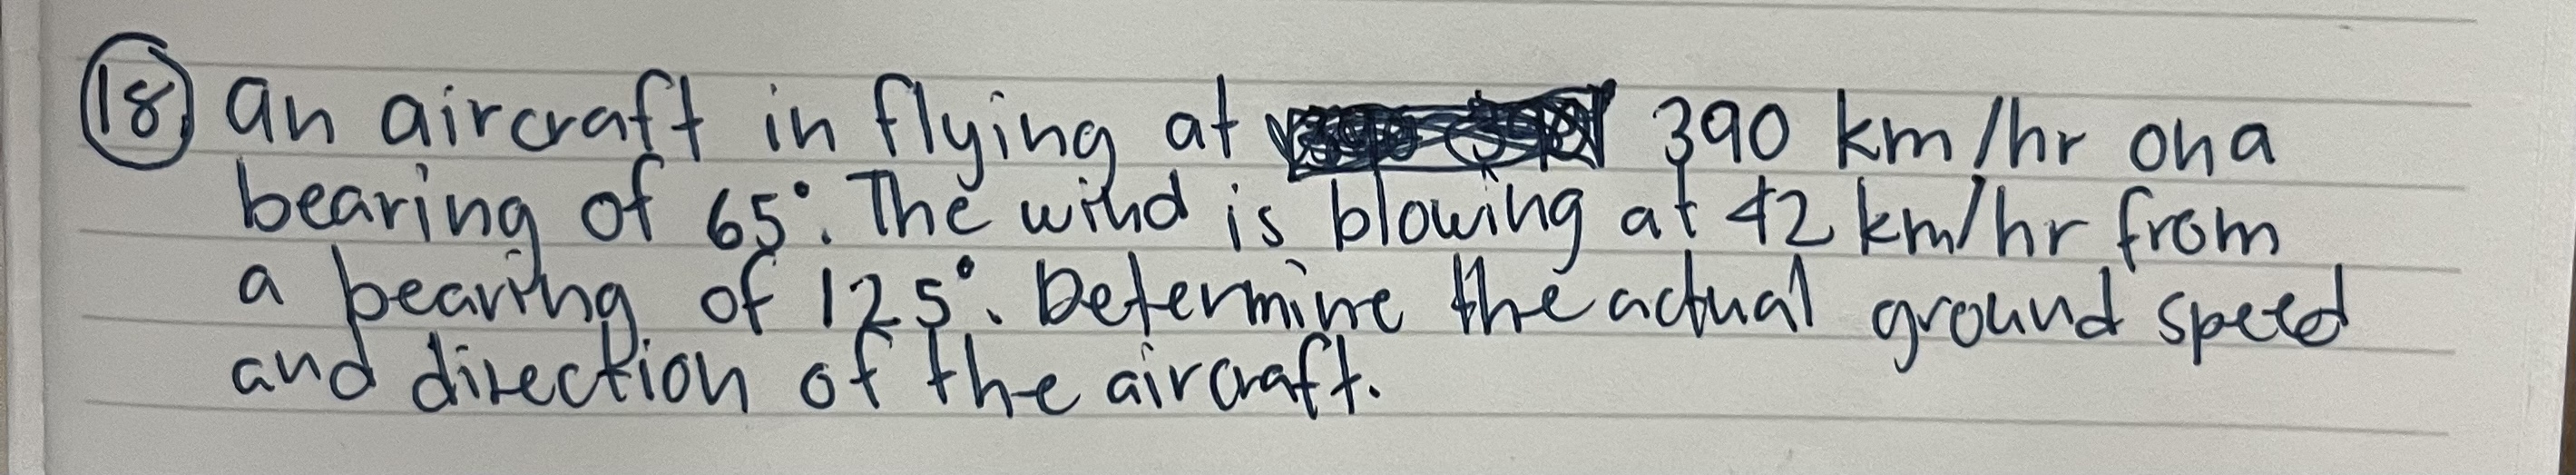 18 an aircraft in flying at 390 km/hr on a
bearing of 65°. The wind is blowing at 42 km/hr from
a bearing of 125°. Determine the actual ground speed
and direction of the aircraft.